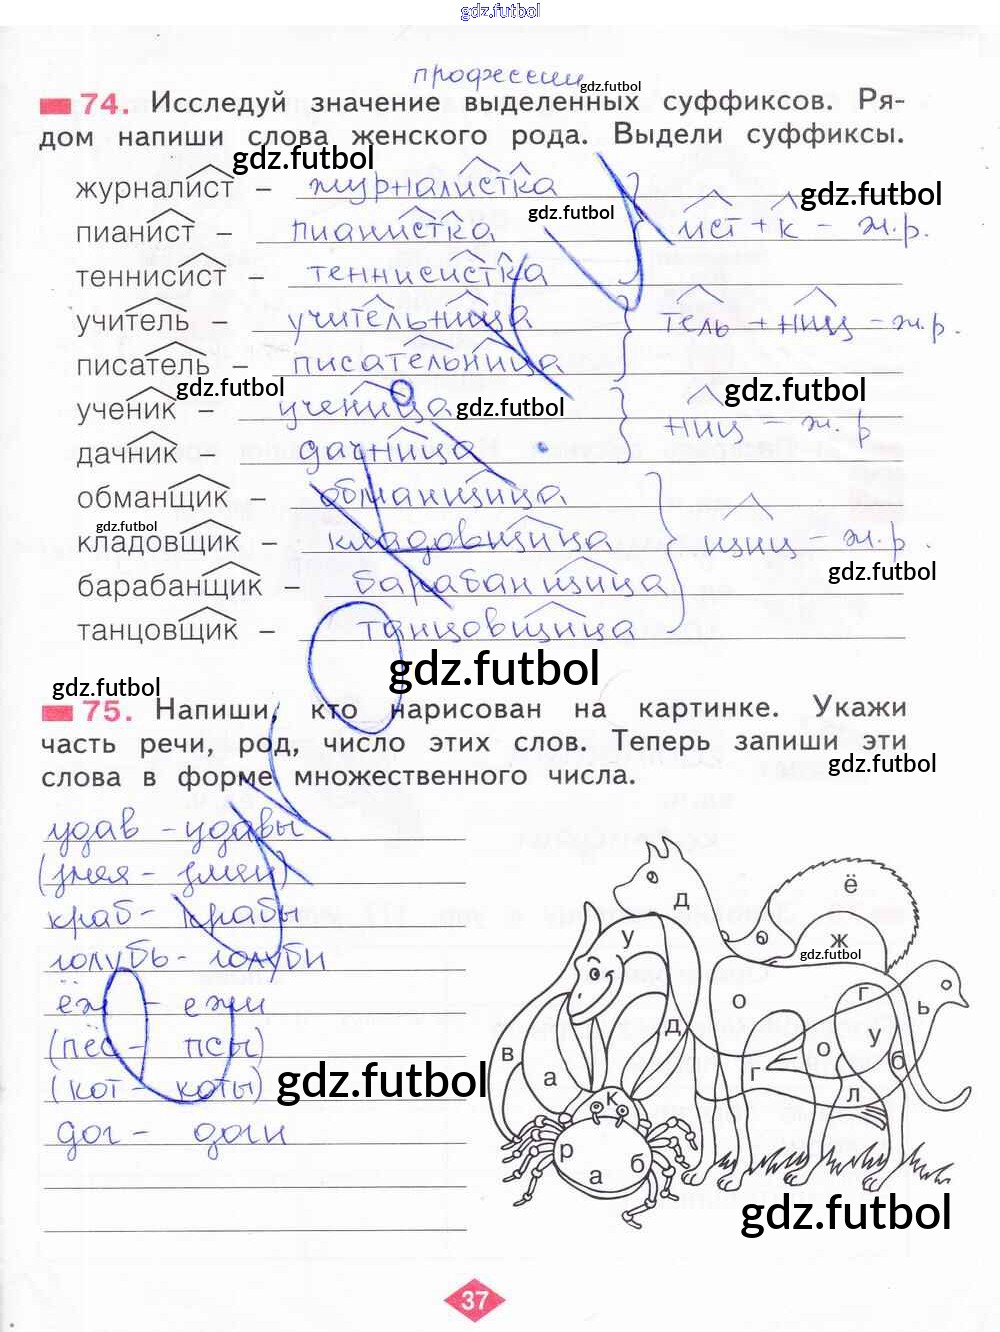 gdz.futbol
профессии
gdz.futbol
74. Исследуй значение выделенных суффиксов. Ря-
дом напиши слова женского рода. Выдели суффиксы.
gdz.futbol
журналист – журналистка
gdz.futbol
gdz.futbol
пианист – пианистка ист + к - ж.р.
теннисист – теннисистка
учитель – учительница тель + ниц - ж.р.
писатель – писательница
gdz.futbol gdz.futbol
ученик – ученица gdz.futbol
ниц - ж.р
дачник – дачница
обманщик – обманщица
gdz.futbol
кладовщик – кладовщица щиц - ж.р.
gdz.futbol
барабанщик – барабанщица
танцовщик – танцовщица
gdz.futbol
gdz.futbol
75. Напиши, кто нарисован на картинке. Укажи
часть речи, род, число этих слов. Теперь запиши эти
gdz.futbol
слова в форме множественного числа.
удав - удавы
(змея - змеи)
краб - крабы
голубь - голуби
ёж - ежи
(пёс - псы)
(кот - коты)
дог - доги
gdz.futbol
ё
д
ж
gdz.futbol
у
о
г
ь
д
у
о
б
в
а
г
л
к
р
а
б
gdz.futbol
37